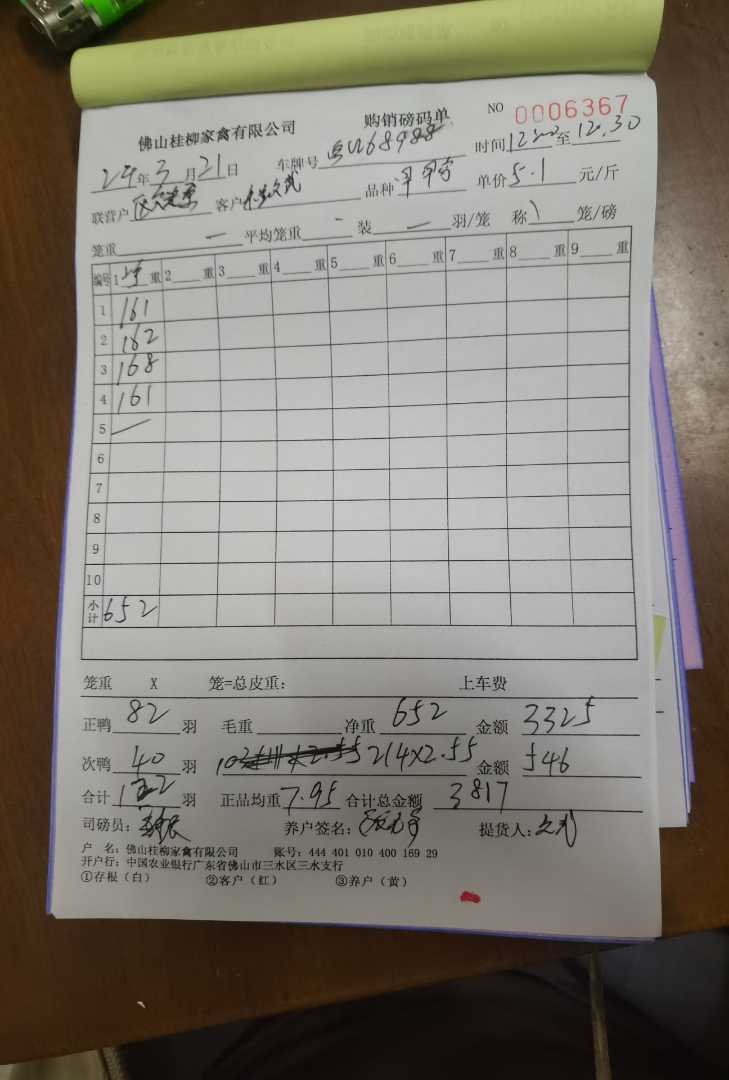 佛山桂柳家禽有限公司 购销磅码单 NO 0006367
24年3月21日 车牌号 68988 时间 至12.30
联营户 客户 品种 单价5.1元/斤
笼重 — 平均笼重 - 装 — 羽/笼 称 \ 笼/磅
编号 1 重 2 重 3 重 4 重 5 重 6 重 7 重 8 重 9 重
1 161
2 162
3 168
4 161
5 —
6
7
8
9
10
小计 652
笼重 X 笼=总皮重: 上车费
正鸭 82 羽 毛重 净重 652 金额 3325
次鸭 40 羽 214×2.55 金额 546
合计 122 羽 正品均重 7.95 合计总金额 3817
司磅员: 养户签名: 提货人:
户 名: 佛山桂柳家禽有限公司 账号: 444 401 010 400 169 29
开户行: 中国农业银行广东省佛山市三水区三水支行
①存根（白） ②客户（红） ③养户（黄）